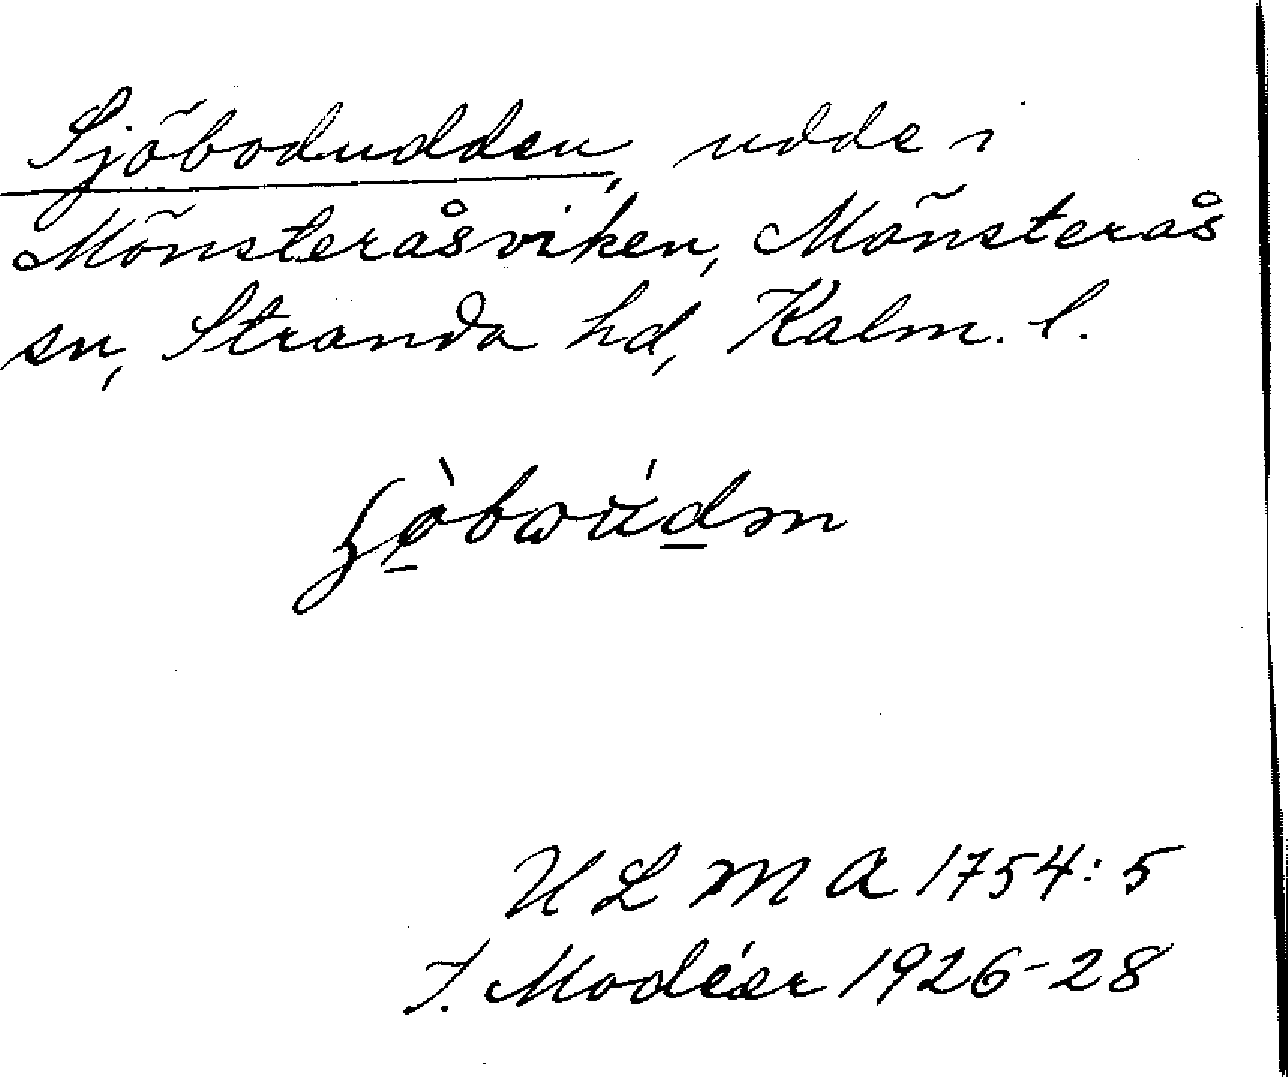 Sjöbodudden, udde i
Mönsteråsviken, Mönsterås
sn, Stranda hd, Kalm. l.
ULMA 1754:5
I. Modéer 1926-28